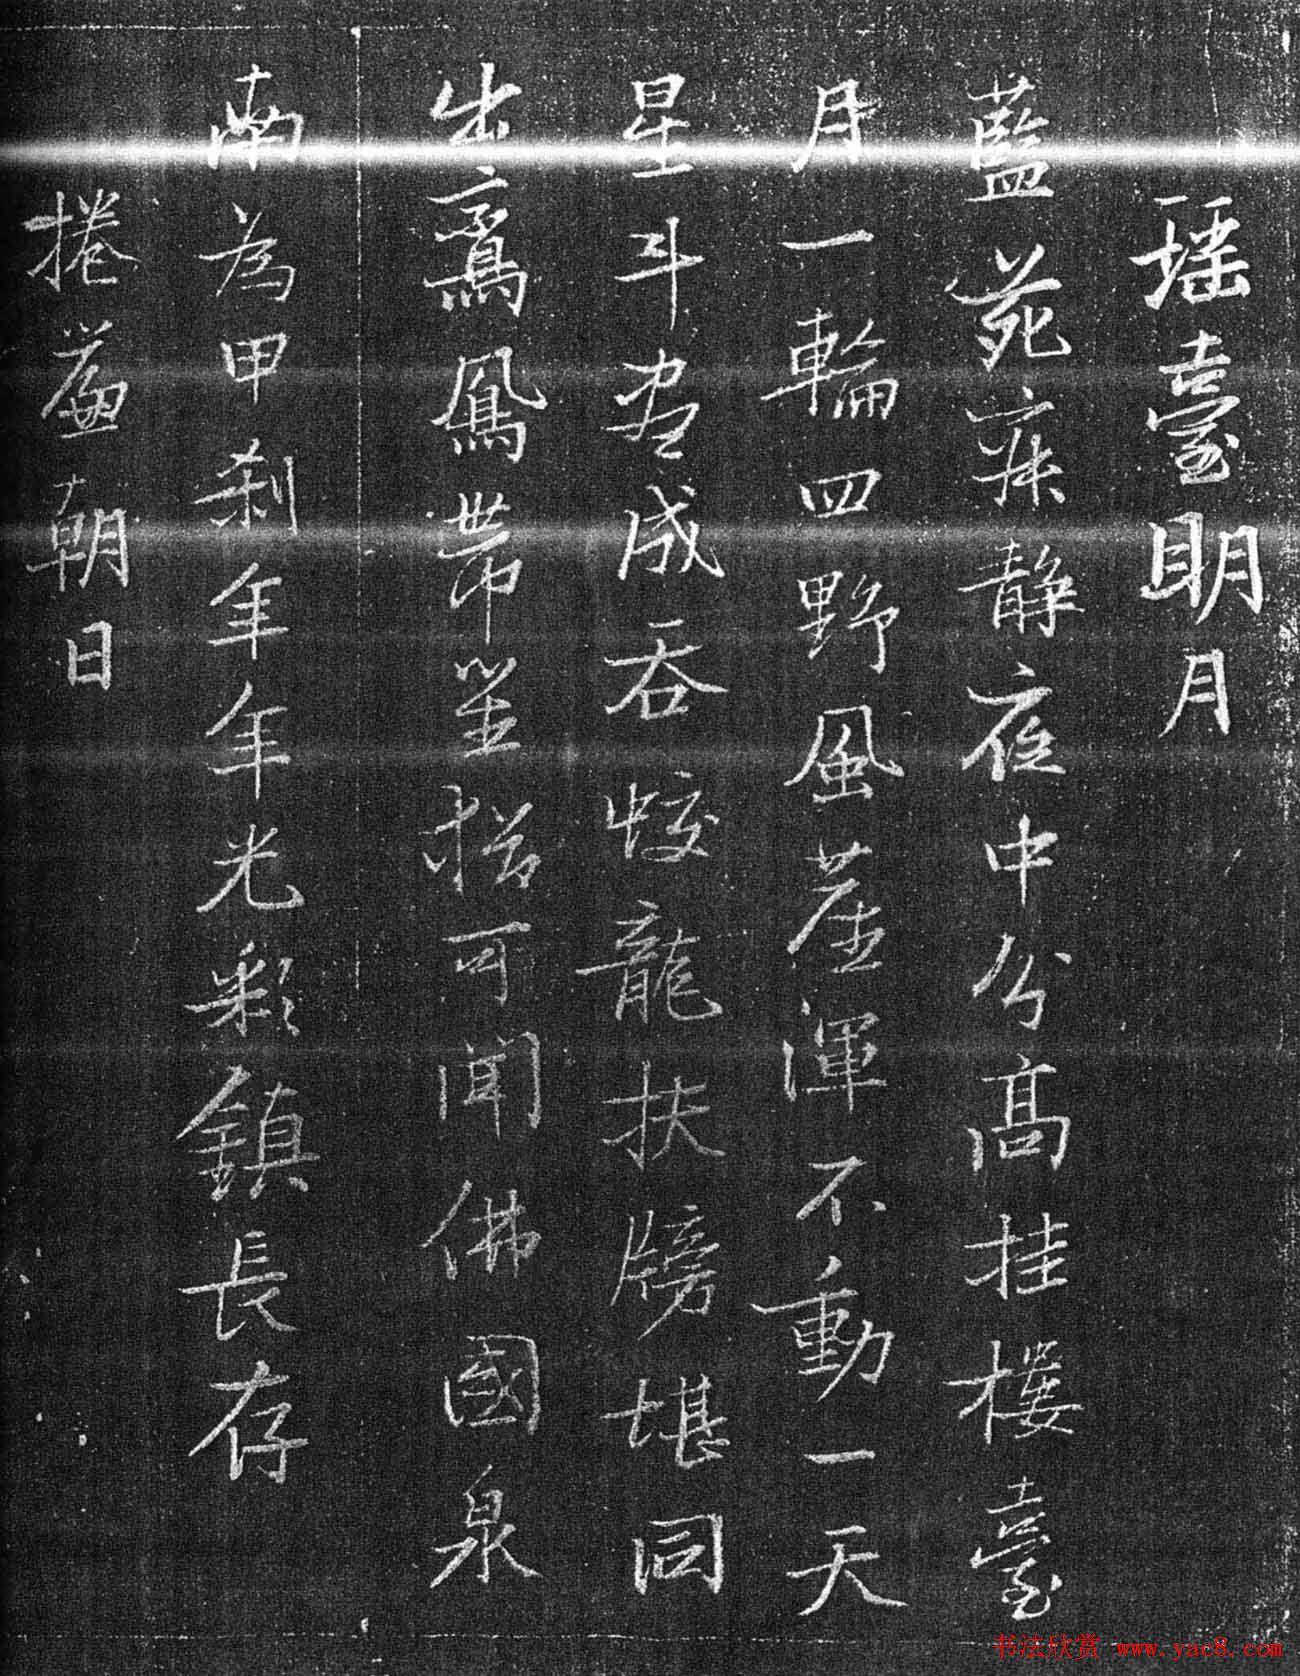 瑤臺眀月
藍苑寂靜夜中分高挂樓臺
月一輪四野風塵渾不動一天
星斗盡成吞蛟龍扶牓堪同
出鸞鳳帶笙招可聞佛國泉
南為甲剎年年光彩鎮長存
捲簾朝日
书法欣赏 www.yac8.com